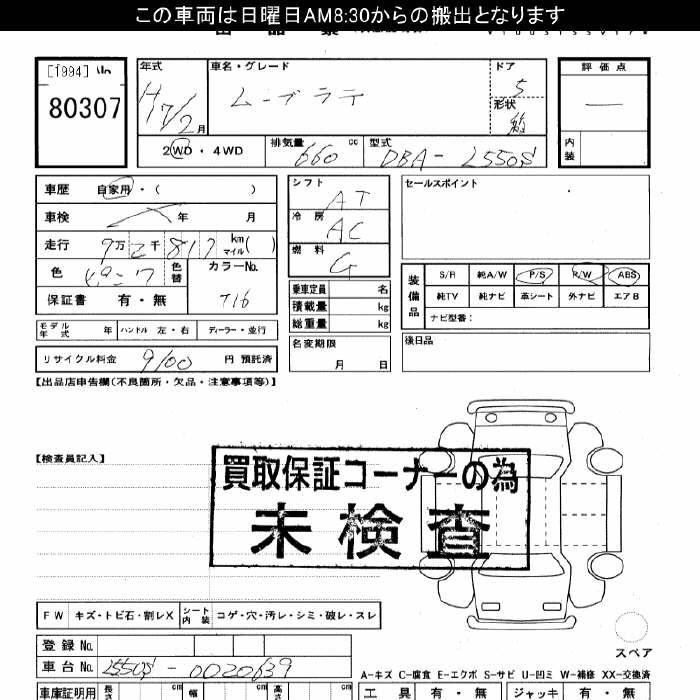 この車両は日曜日AM8:30からの搬出となります
[1994]
80307
年式 H17/2月
車名・グレード ムーブラテ
ドア 5
形状 箱
評価点 —
内装
2WD・4WD
排気量 660 cc
型式 DBA-L550S
車歴 自家用・( )
車検 年 月
走行 9万2千817 km マイル( )
色 ピンク 色替
カラーNo. T16
保証書 有・無
シフト AT
冷房 AC
燃料 G
乗車定員 名
積載量 kg
総重量 kg
名変期限 月 日
セールスポイント
装備品 S/R 純A/W P/S P/W ABS
純TV 純ナビ 革シート 外ナビ エアB
ナビ型番:
後日品
モデル年式 年 ハンドル 左・右 ディーラー・並行
リサイクル料金 9100 円 預託済
【出品店申告欄(不良箇所・欠品・注意事項等)】
【検査員記入】
買取保証コーナーの為
未検査
FW キズ・トビ石・割レX シート内装 コゲ・穴・汚レ・シミ・破レ・スレ
スペア
登録No.
車台No. L550S-0020639
A-キズ C-腐食 E-エクボ S-サビ U-凹ミ W-補修 XX-交換済
車庫証明用 長さ cm 幅 cm 高さ cm
工具 有・無 ジャッキ 有・無